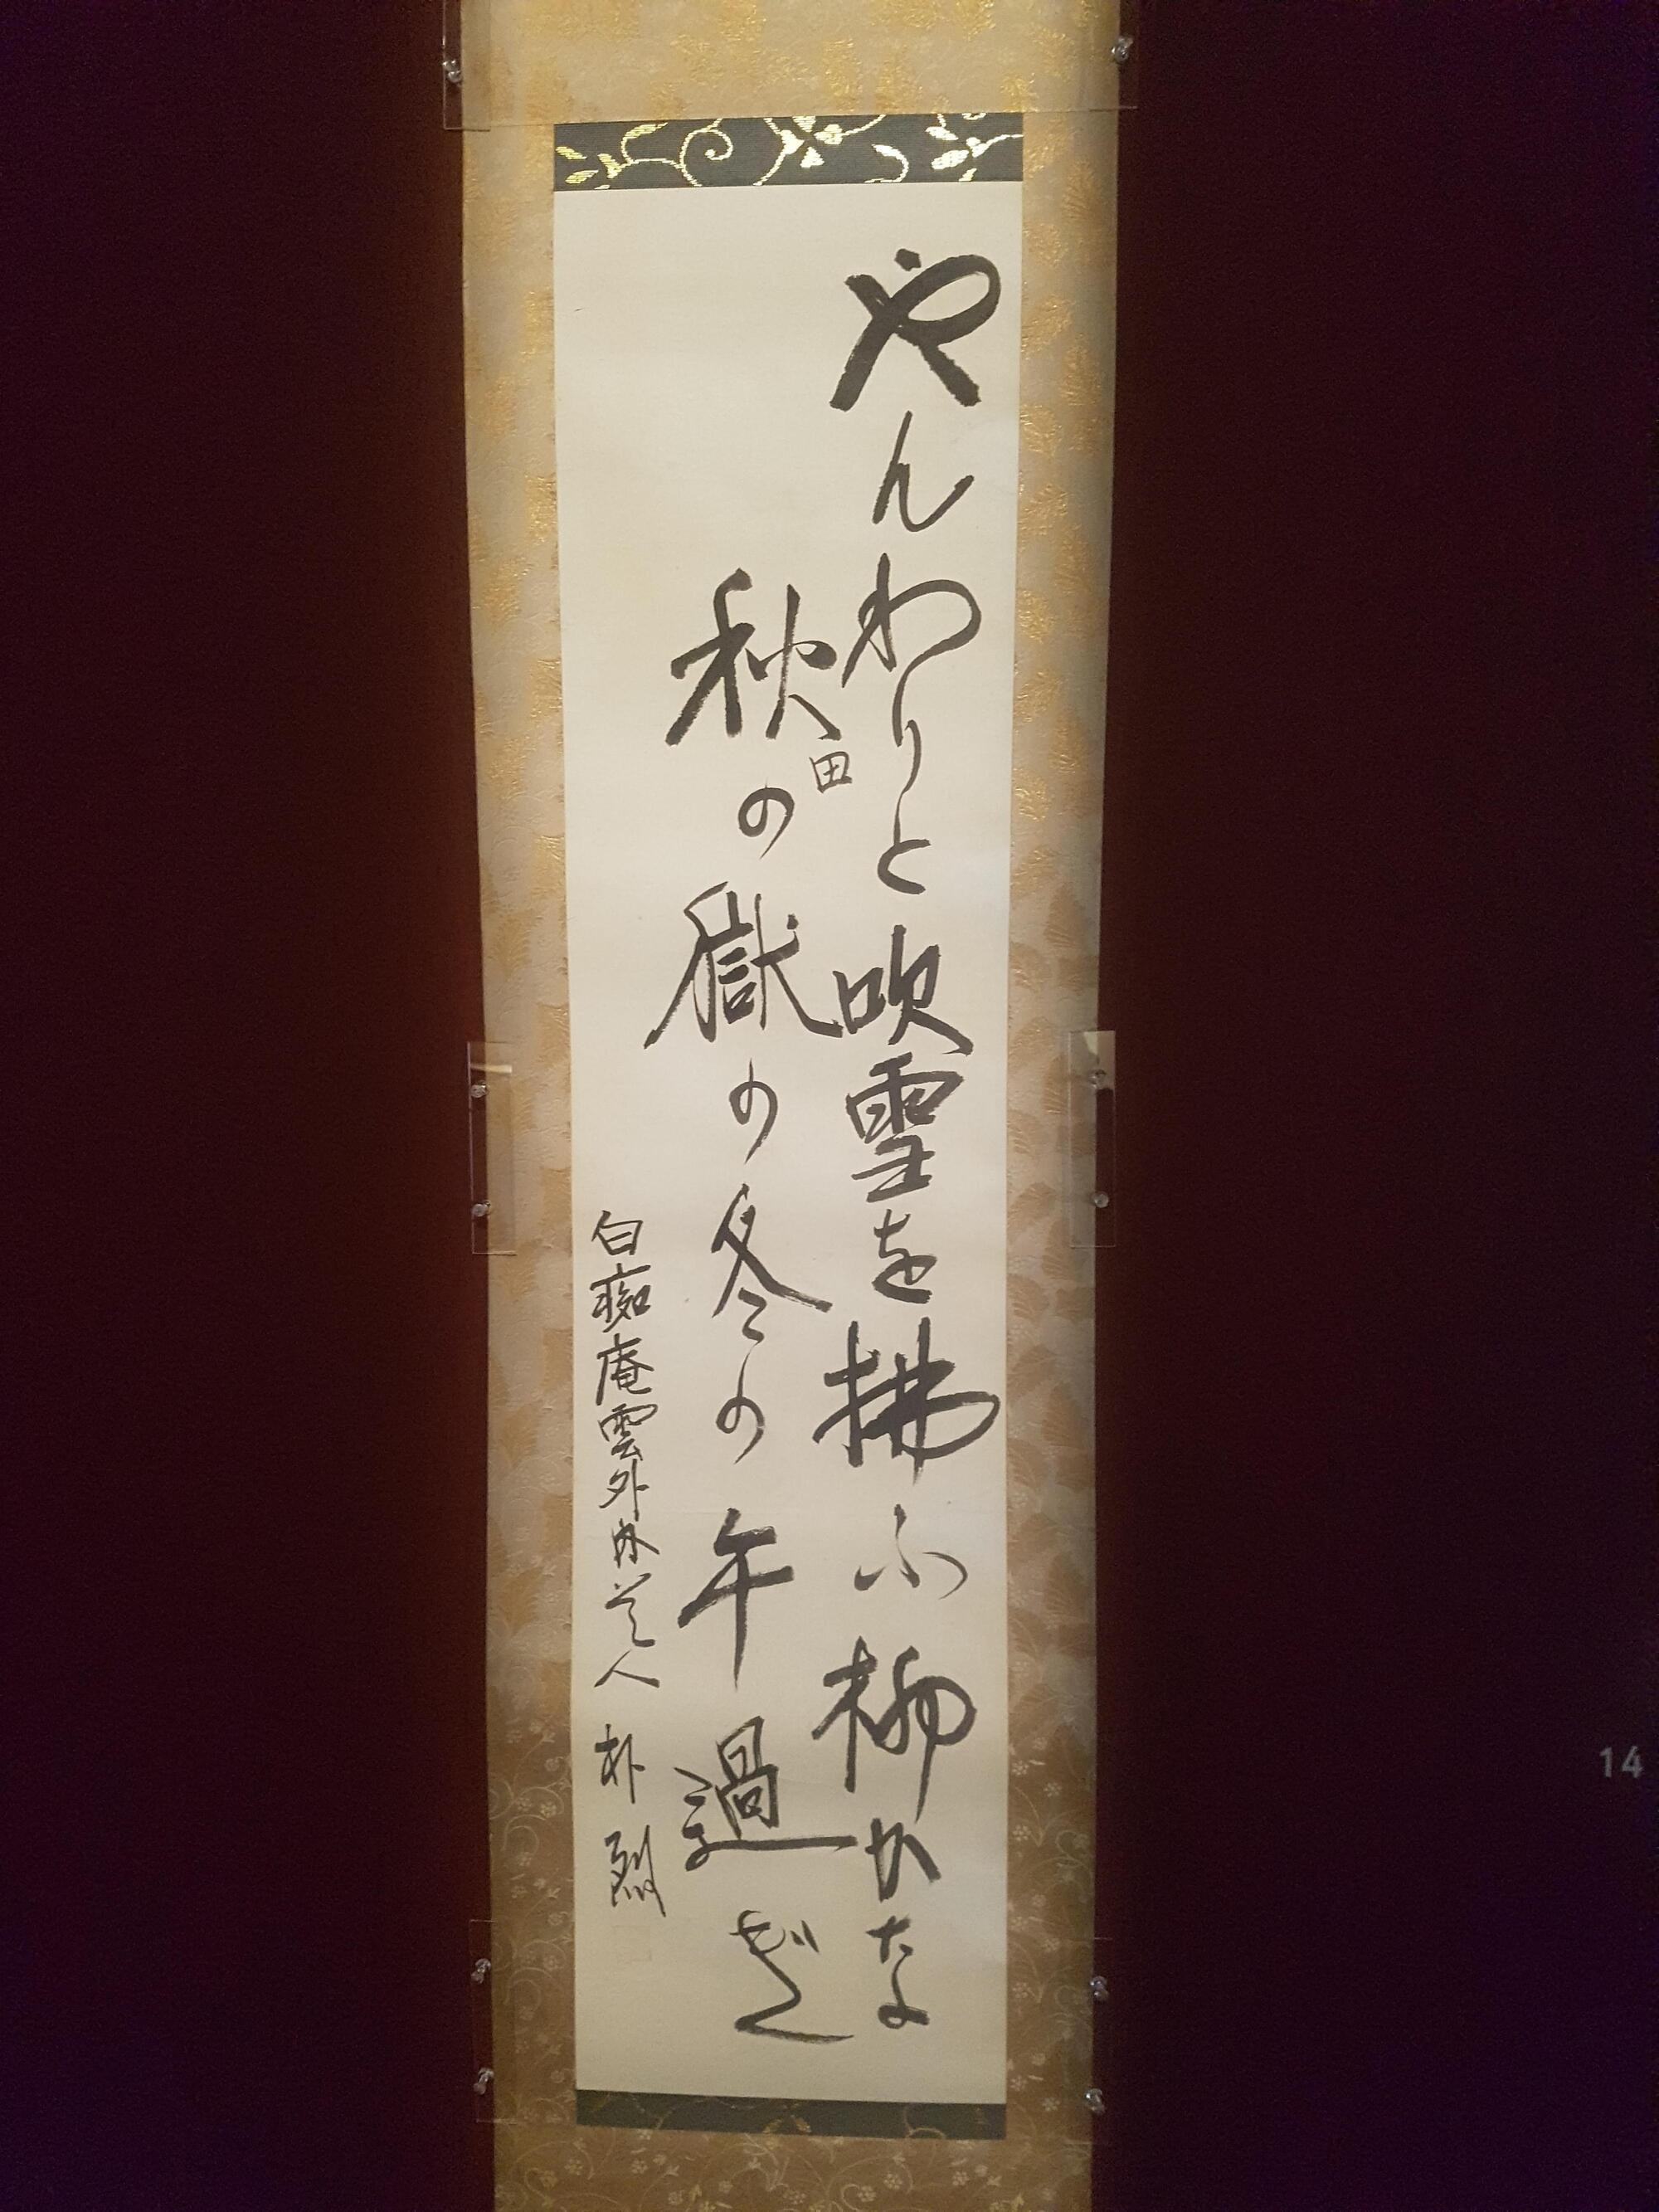 やんわりと吹雪を拂ふ柳かな
秋田の獄の冬の午過ぎ
白痴庵雲外外史人 朴烈
14